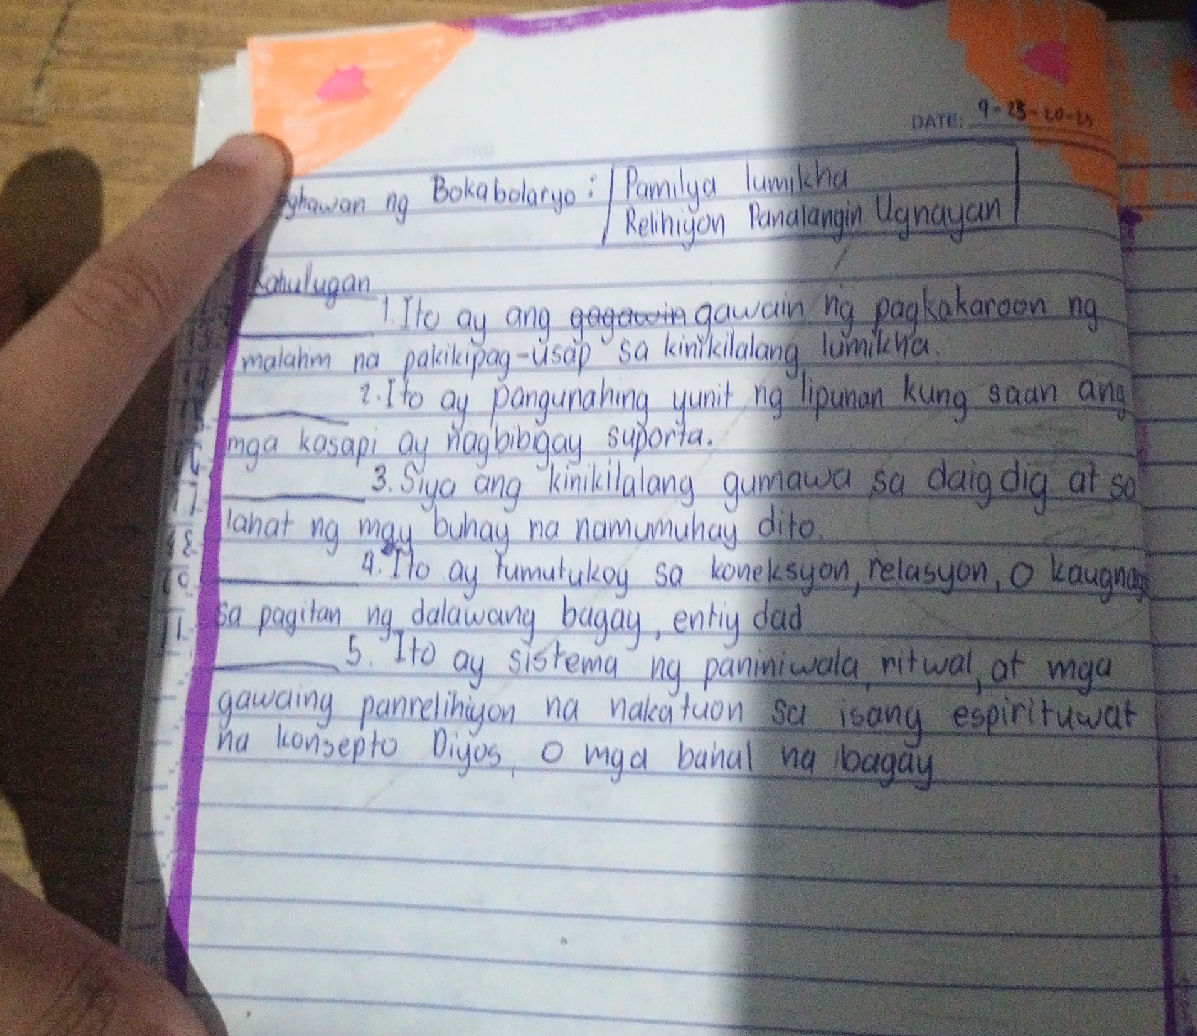 DATE: 9-25-20-25
ng Bokabolaryo: Pamilya lumikha
Relihiyon Panalangin Ugnayan
Kahulugan
1. Ito ay ang gagawin gawain ng pagkakaroon ng
malalim na pakikipag-usap sa kinikilalang lumikha.
2. Ito ay pangunahing yunit ng lipunan kung saan ang
mga kasapi ay nagbibigay suporta.
3. Siya ang kinikilalang gumawa sa daigdig at sa
lahat ng may buhay na namumuhay dito.
4. Ito ay tumutukoy sa koneksyon, relasyon, o
sa pagitan ng dalawang bagay, entiy dad
5. Ito ay sistema ng paniniwala, ritwal, at mga
gawaing panrelihiyon na nakatuon sa isang espirituwat
na konsepto Diyos, o mga banal na bagay